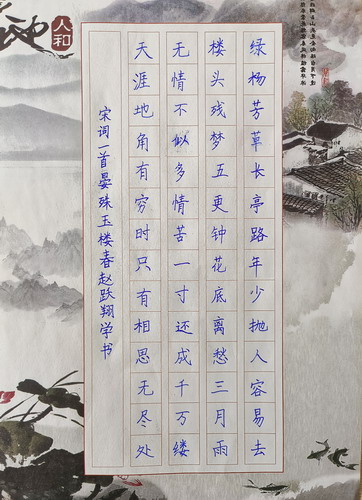 绿杨芳草长亭路年少抛人容易去
楼头残梦五更钟花底离愁三月雨
无情不似多情苦一寸还成千万缕
天涯地角有穷时只有相思无尽处
宋词一首晏殊玉楼春赵跃翔学书
人和